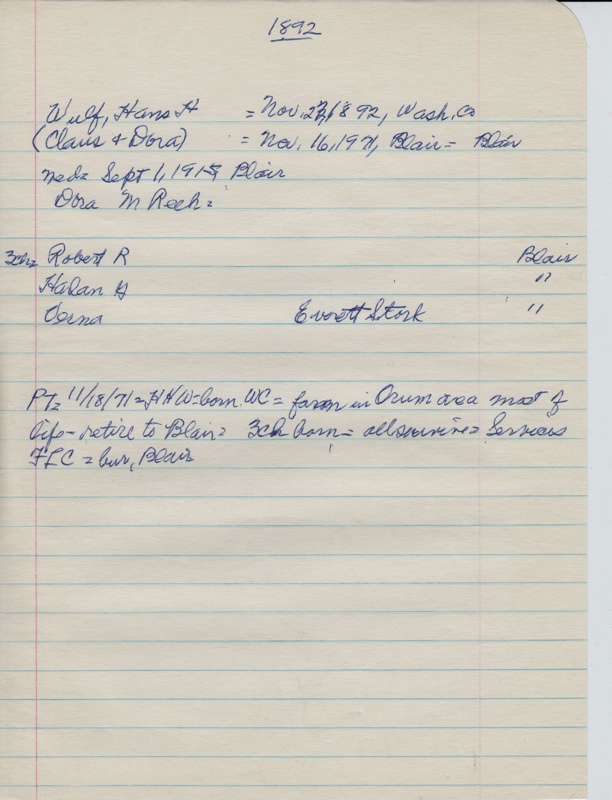 1892
Wulf, Hans H = Nov. 27, 1892, Wash. Co
(Claus + Dora) = Nov. 16, 1971, Blair = Blair
med= Sept 1, 1915 Blair
Dora M Rech =
3ch= Robert R Blair
Harlan H "
Verna Everett Stork "
PT= 11/18/71 = HHW=born WC = farm in Orum area most of
life - retire to Blair = 3ch born = all survive = Services
FLC = bur, Blair